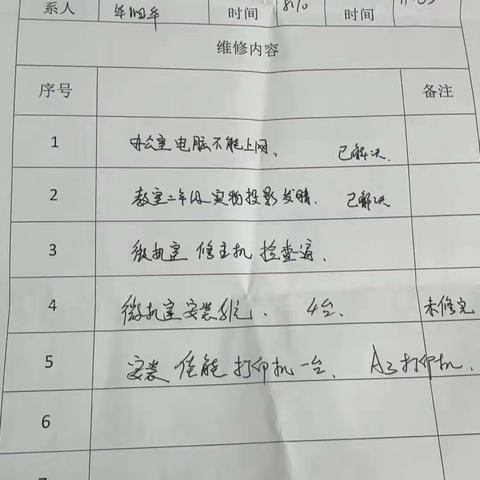 系人 时间 8:10 时间
维修内容
序号 备注
1 办公室电脑不能上网、 已解决.
2 教室二年级实物投影发暗. 已解决
3 微机室 修主机 检查
4 微机室安装系统、 4台. 未修完
5 安装 佳能打印机一台. A3打印机.
6